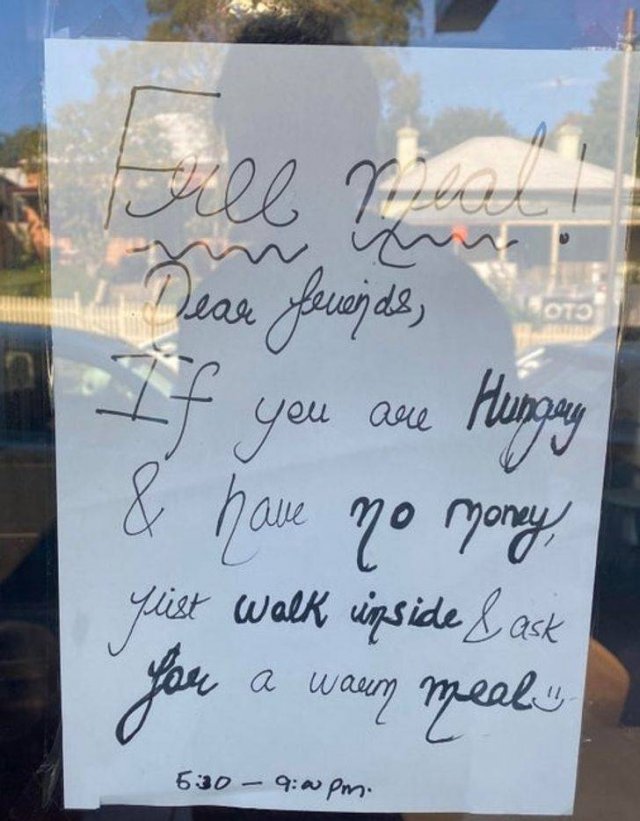 Free meal!
Dear friends,
If you are Hungry
& have no money,
just walk inside & ask
for a warm meal
5:30 – 9:00 pm.